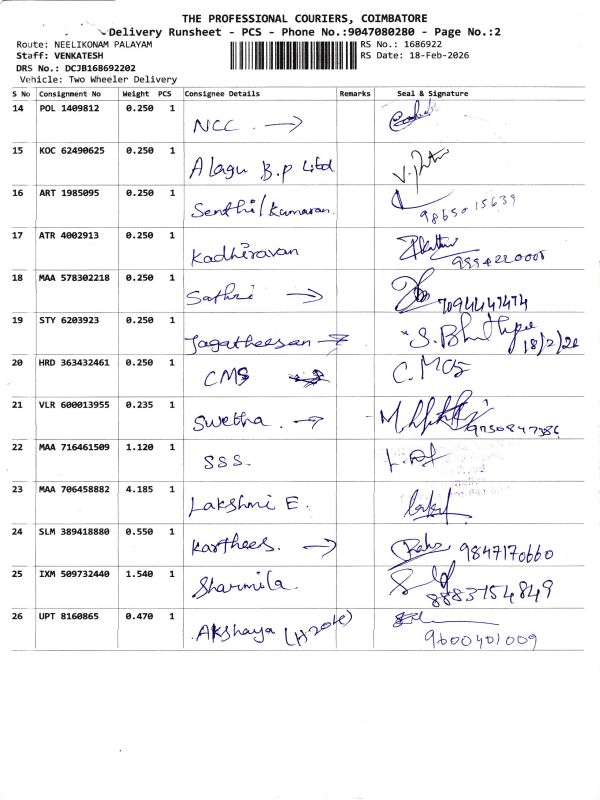 THE PROFESSIONAL COURIERS, COIMBATORE
Delivery Runsheet - PCS - Phone No.:9047080280 - Page No.:2
Route: NEELIKONAM PALAYAM
RS No.: 1686922
Staff: VENKATESH
RS Date: 18-Feb-2026
DRS No.: DCJB168692202
Vehicle: Two Wheeler Delivery
S No Consignment No Weight PCS Consignee Details Remarks Seal & Signature
14 POL 1409812 0.250 1 NCC. →
15 KOC 62490625 0.250 1 Alagu B.P Ltd
16 ART 1985095 0.250 1 Senthil Kumaran.
9865015639
17 ATR 4002913 0.250 1 Kadhiravan
18 MAA 578302218 0.250 1 Sathri →
7094447474
19 STY 6203923 0.250 1 Jagatheesan →
18/2/26
20 HRD 363432461 0.250 1 CMS
21 VLR 600013955 0.235 1 Swetha. →
22 MAA 716461509 1.120 1 SSS.
23 MAA 706458882 4.185 1 Lakshmi E.
24 SLM 389418880 0.550 1 Karthees. → 9847170660
25 IXM 509732440 1.540 1 Sharmila.
8883754849
26 UPT 8160865 0.470 1 Akshaya
9600401009